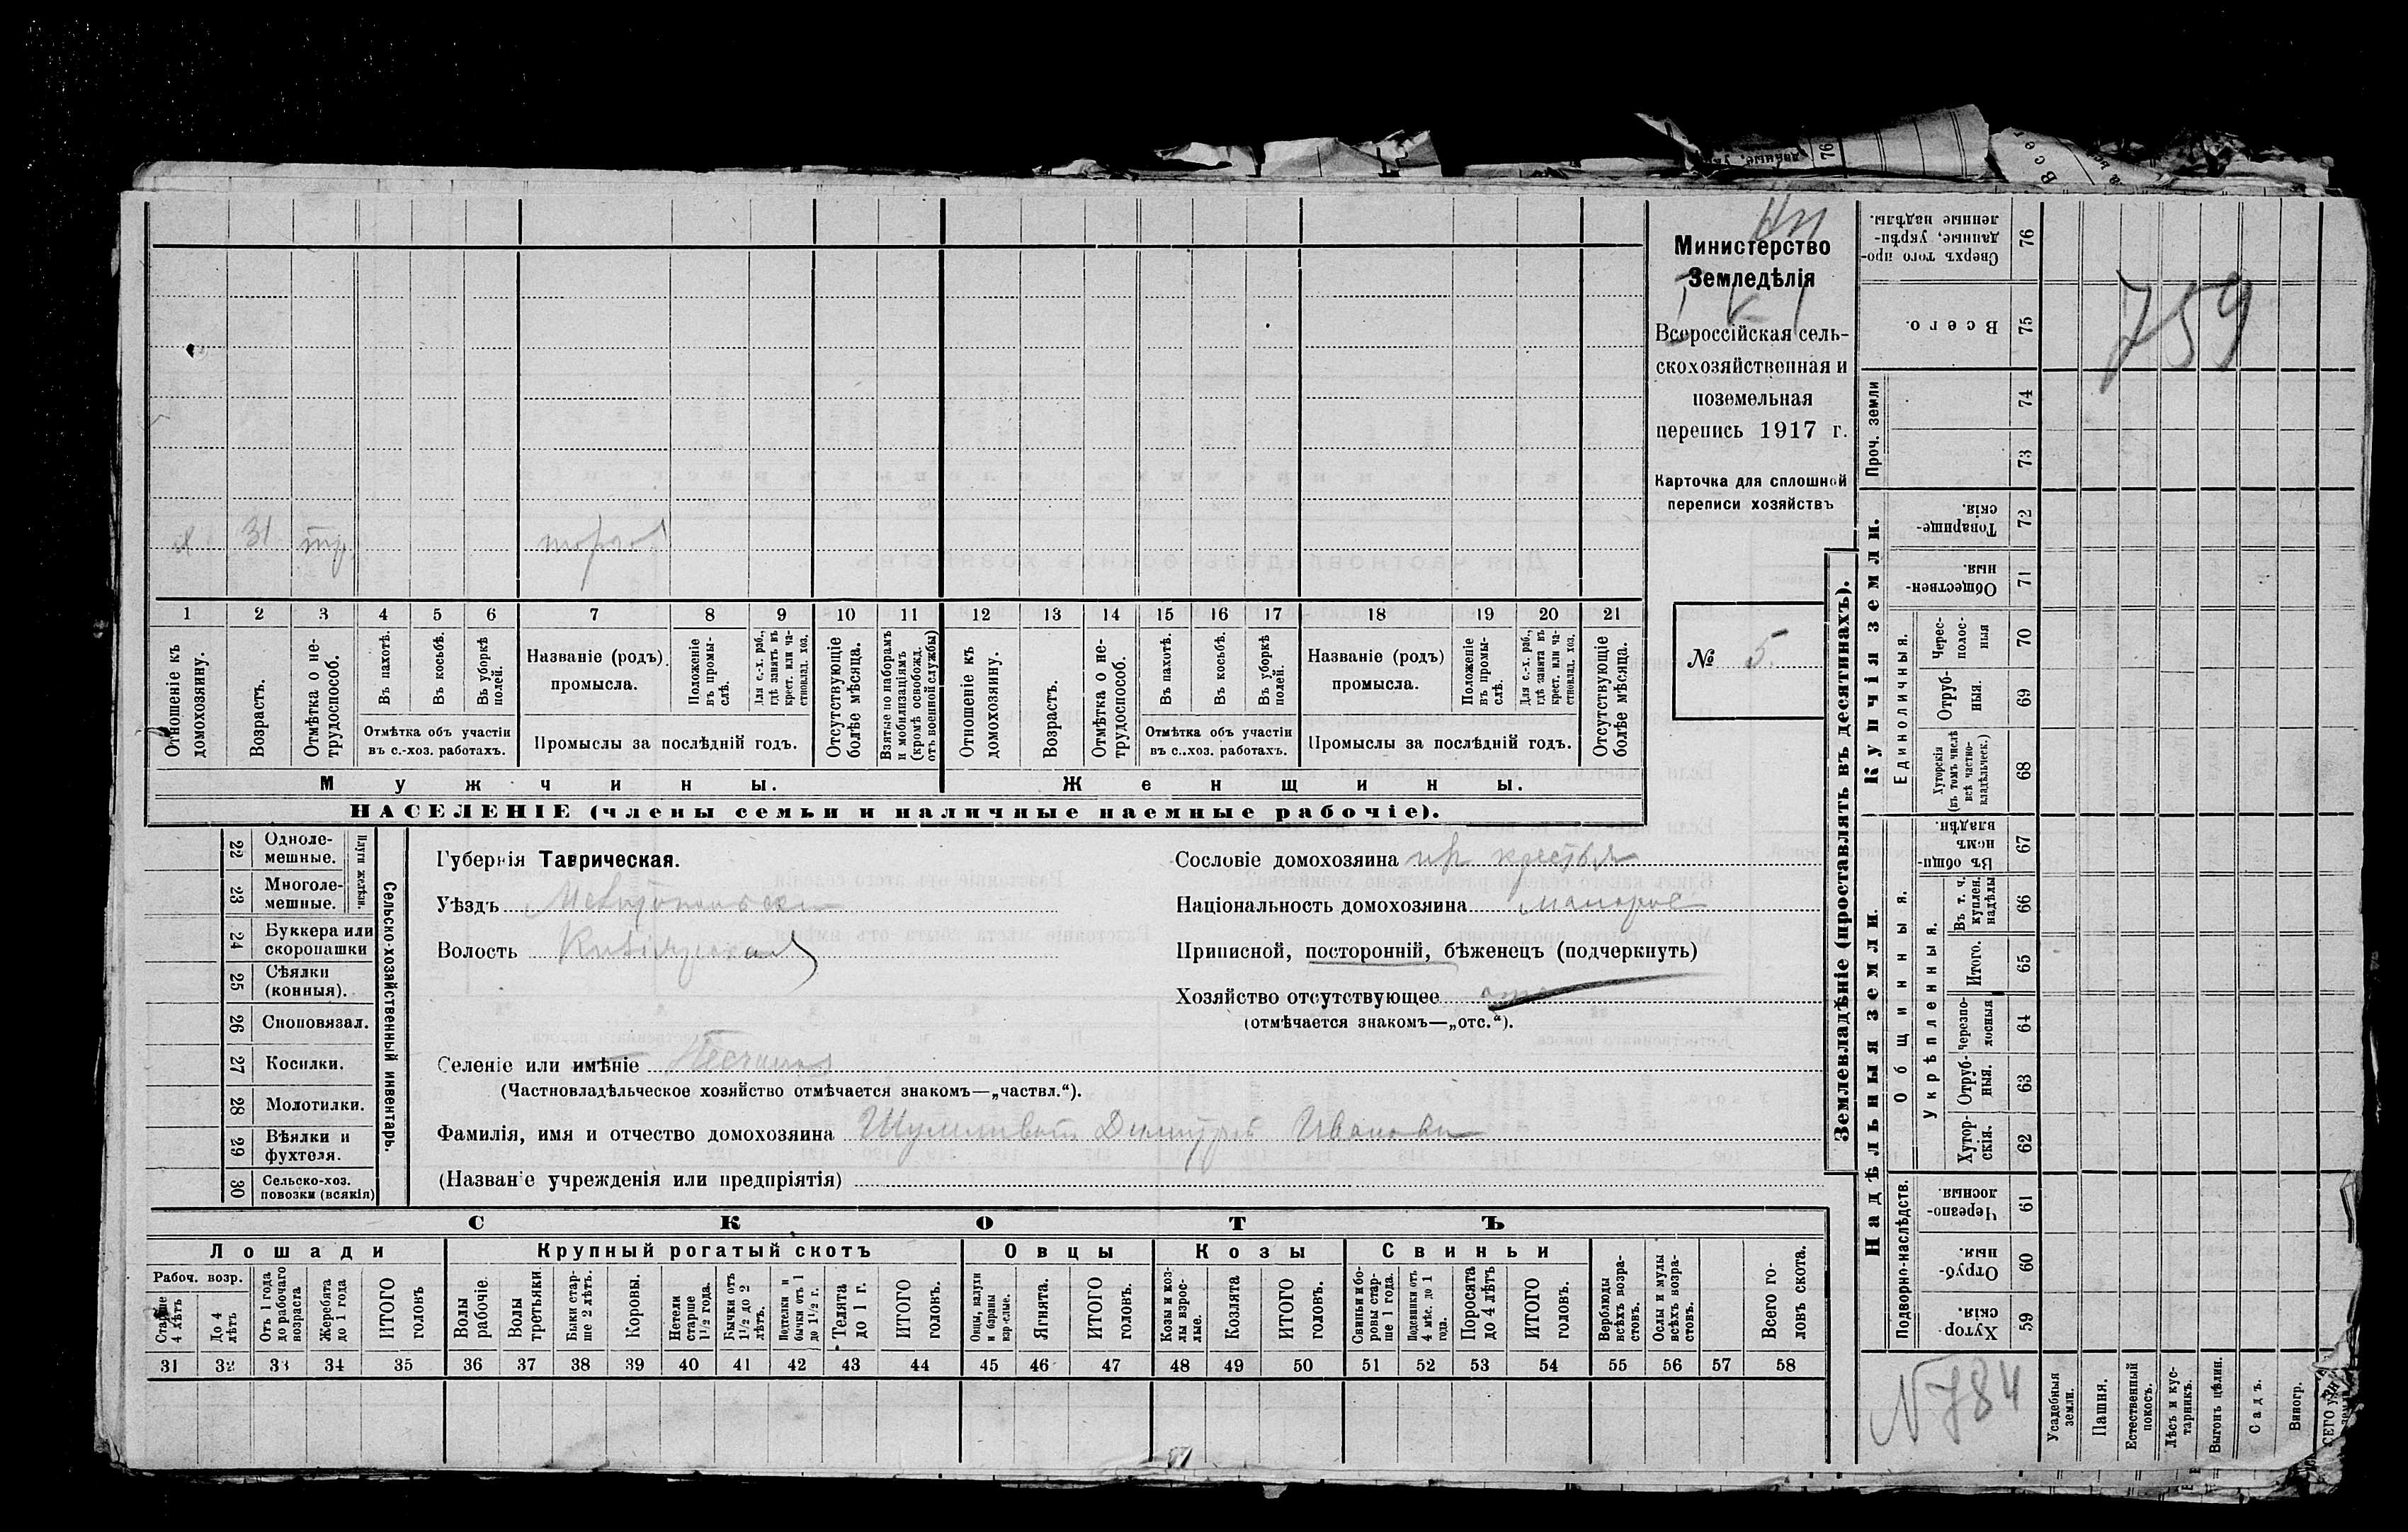 Министерство
Земледѣлія
Всероссійская сель-
скохозяйственная и
поземельная
перепись 1917 г.
Карточка для сплошной
переписи хозяйствъ
№ 5.
31
1 2 3 4 5 6 7 8 9 10 11 12 13 14 15 16 17 18 19 20 21
Отношеніе къ домохозяину.
Возрастъ.
Отмѣтка о не-трудоспособ.
Въ пахотѣ.
Въ косьбѣ.
Въ уборкѣ полей.
Отмѣтка объ участіи
въ с.-хоз. работахъ.
Названіе (родъ)
промысла.
Положеніе въ промы-слѣ.
Для с.-х. раб., гдѣ занятъ въ крест. или ча-стновлад. хоз.
Промыслы за послѣдній годъ.
Отсутствующіе болѣе мѣсяца.
Взятые по наборамъ и мобилизаціямъ (кромѣ освобожд. отъ военной службы)
Отношеніе къ домохозяину.
Возрастъ.
Отмѣтка о не-трудоспособ.
Въ пахотѣ.
Въ косьбѣ.
Въ уборкѣ полей.
Отмѣтка объ участіи
въ с.-хоз. работахъ.
Названіе (родъ)
промысла.
Положеніе въ промы-слѣ.
Для с.-х. раб., гдѣ занята въ крест. или ча-стновлад. хоз.
Промыслы за послѣдній годъ.
Отсутствующіе болѣе мѣсяца.
Мужчины.
Женщины.
НАСЕЛЕНІЕ (члены семьи и наличные наемные рабочіе).
Сельско-хозяйственный инвентарь.
Плуги желѣзн.
22 Одноле-мешные.
23 Многоле-мешные.
24 Буккера или скоропашки
25 Сѣялки (конныя).
26 Сноповязал.
27 Косилки.
28 Молотилки.
29 Вѣялки и фухтеля.
30 Сельско-хоз. повозки (всякія)
Губернія Таврическая.
Уѣздъ
Волость
Селеніе или имѣніе
(Частновладѣльческое хозяйство отмѣчается знакомъ—„частвл.“).
Фамилія, имя и отчество домохозяина
(Названіе учрежденія или предпріятія)
Сословіе домохозяина
Національность домохозяина
Приписной, посторонній, бѣженецъ (подчеркнуть)
Хозяйство отсутствующее
(отмѣчается знакомъ—„отс.“).
СКОТЪ
Лошади
Крупный рогатый скотъ
Овцы
Козы
Свиньи
Рабоч. возр.
Старше 4 лѣтъ
До 4 лѣтъ
Отъ 1 года до рабочаго возраста
Жеребята до 1 года
ИТОГО головъ
Волы рабочіе.
Волы третьяки.
Быки стар-ше 2 лѣтъ.
Коровы.
Нетели старше 1½ года.
Бычки отъ 1½ до 2 лѣтъ.
Подтелки и бычки отъ 1 до 1½ г.
Телята до 1 г.
ИТОГО головъ.
Овцы, валухи и бараны взрослые.
Ягнята.
ИТОГО головъ.
Козы и коз-лы взрос-лые.
Козлята
ИТОГО головъ.
Свиньи и бо-ровы стар-ше 1 года.
Подсвинки отъ 4 мѣс. до 1 года.
Поросята до 4 лѣтъ
ИТОГО головъ.
Верблюды всѣхъ возра-стовъ.
Ослы и мулы всѣхъ возра-стовъ.
Всего го-ловъ скота.
31 32 33 34 35 36 37 38 39 40 41 42 43 44 45 46 47 48 49 50 51 52 53 54 55 56 57 58
Землевладѣніе (проставлять въ десятинахъ).
Купчія земли.
Надѣльныя земли.
Сверхъ того про-данные, укрѣп-ленные надѣлы. 76
Всего. 75
Проч. земли 74
73
Товарище-скія. 72
Обществен-ныя. 71
Единоличныя.
Черес-полос-ныя 70
Отруб-ныя. 69
Хуторскія (въ томъ числѣ всѣ частно-владѣльческ.) 68
Общинныя.
Въ общи-номъ владѣн. 67
Укрѣпленныя.
Въ т. ч. куплен. надѣлы 66
Итого. 65
Черезпо-лосныя 64
Отруб-ныя. 63
Хутор-скія. 62
Подворно-наслѣдств.
Черезпо-лосныя. 61
Отруб-ныя. 60
Хутор-скія. 59
Усадебныя земли.
Пашня.
Естественный покосъ.
Лѣсъ и кус-тарникъ.
Выгонъ цѣлин.
Садъ.
Виногр.
759
N 784